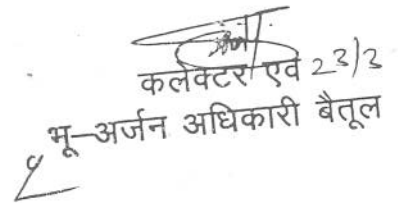 कलेक्टर एवं 23/3
भू–अर्जन अधिकारी बैतूल